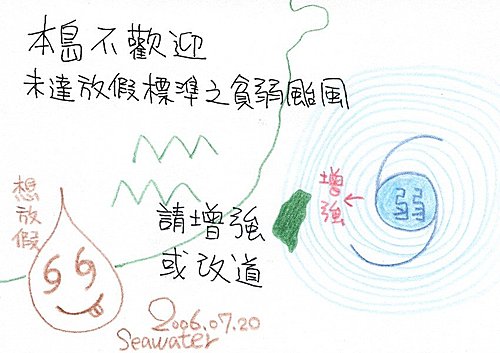 本島不歡迎
未達放假標準之貧弱颱風
想放假
請增強
或改道
增強
弱
2006.07.20
Seawater